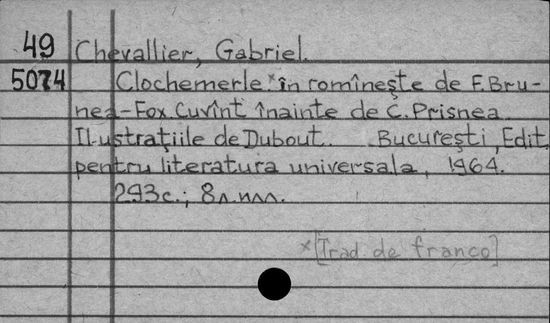 49 Chevallier, Gabriel.
5074 Clochemerle x în romîneşte de F. Bru-
nea-Fox Cuvînt înainte de C. Prisnea
Ilustraţiile de Dubout. Bucureşti, Edit.
pentru literatura universala, 1964.
293 с.; 8 л. илл.
x [Trad. de franco]